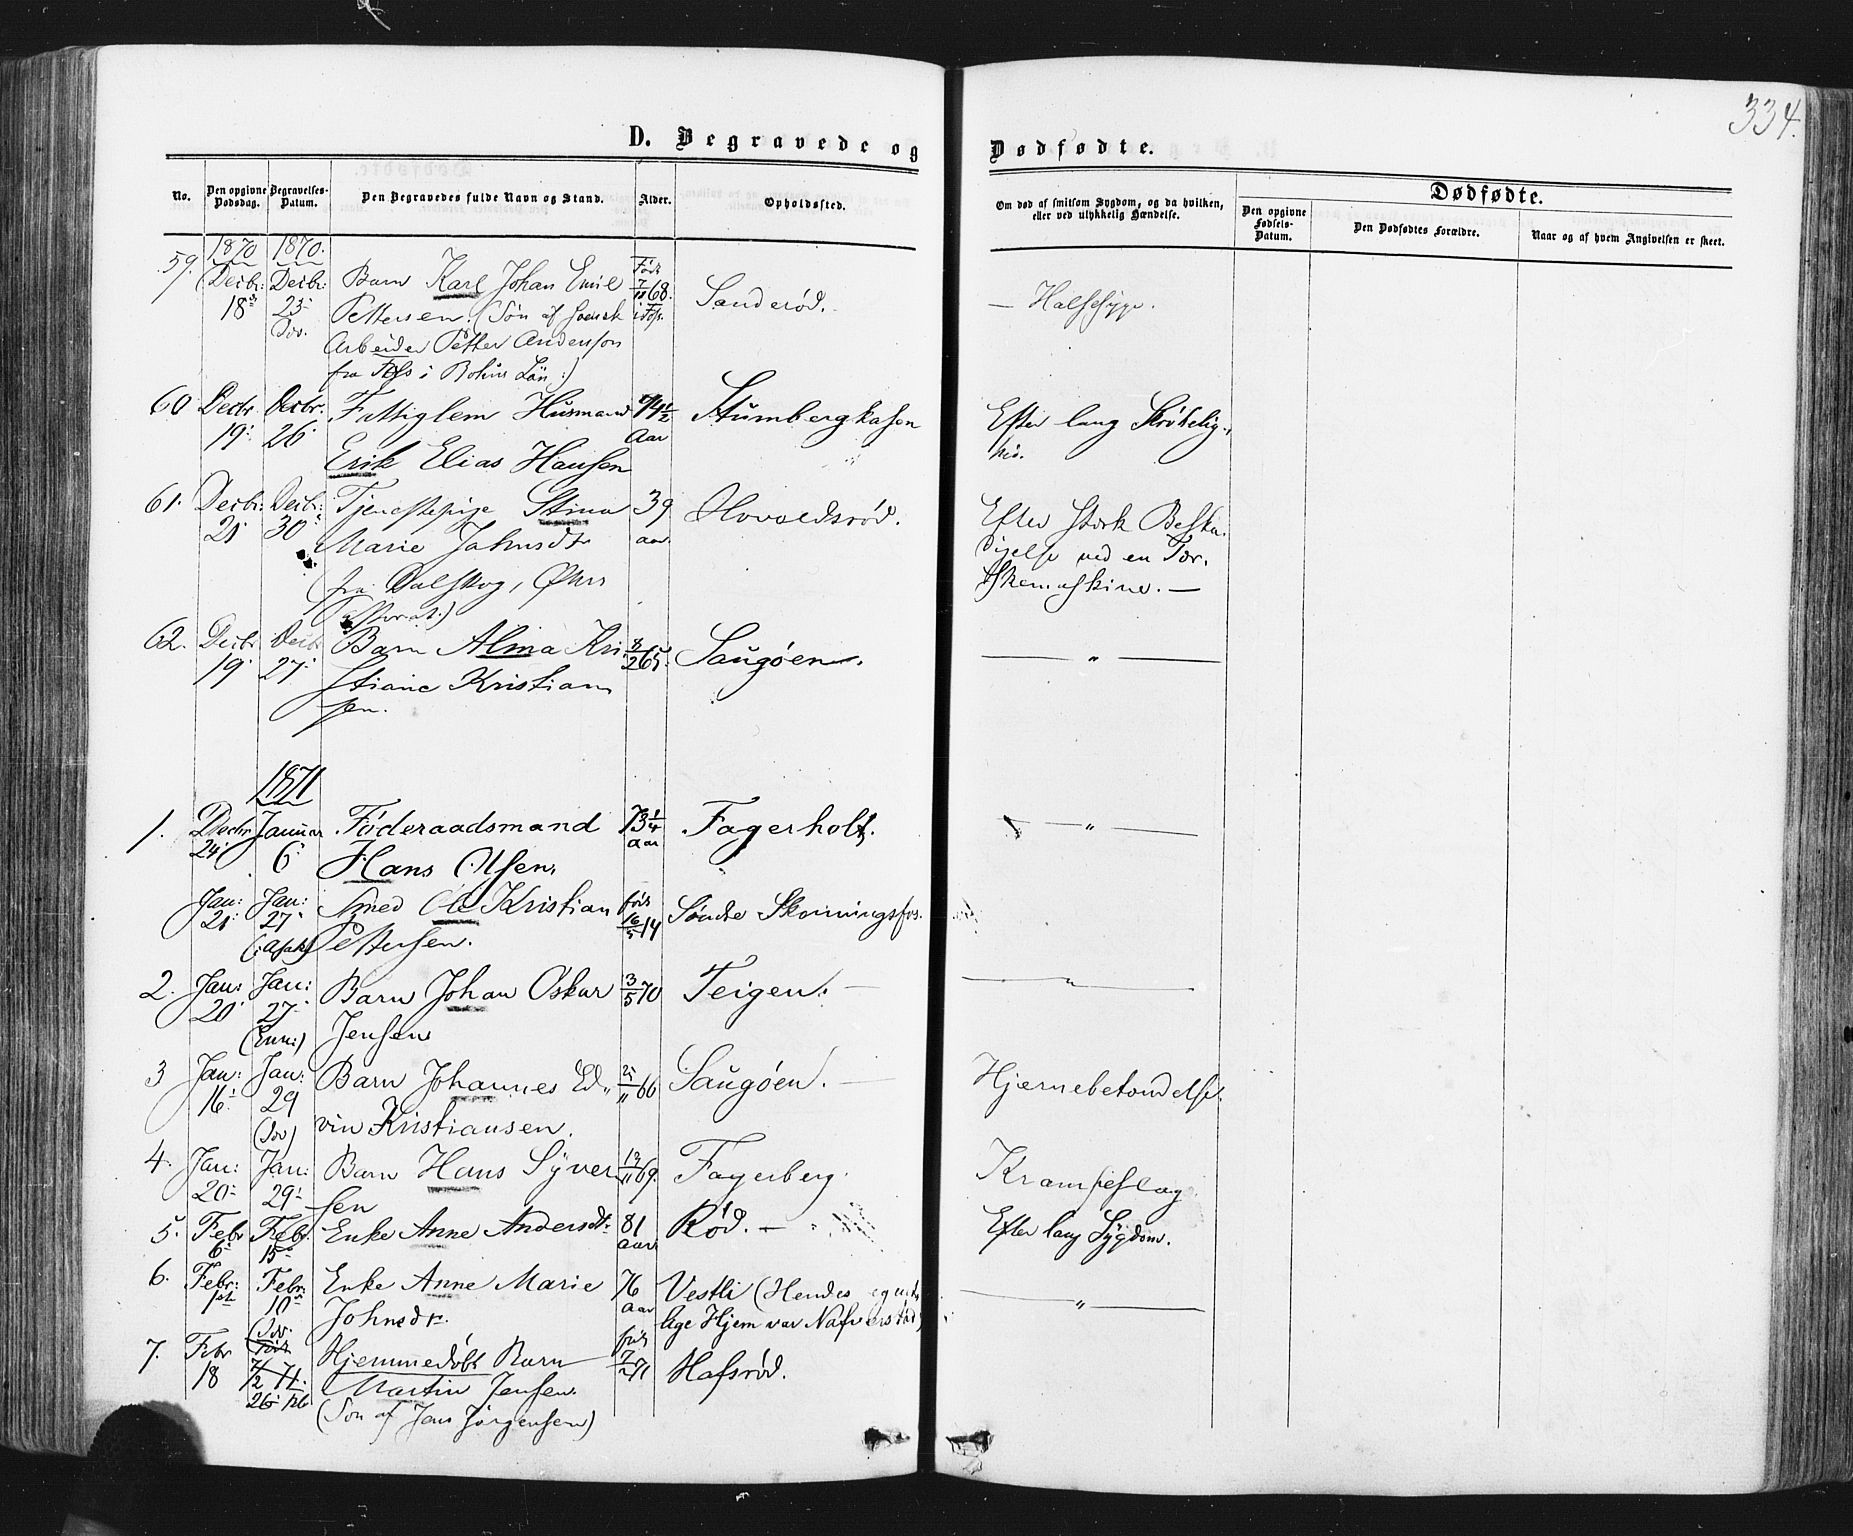 334.
D. Begravede og Dødfødte.
No.
Den opgivne Dødsdag.
Begravelses-Datum.
Den Begravedes fulde Navn og Stand.
Alder.
Opholdssted.
Om død af smitsom Sygdom, og da hvilken, eller ved ulykkelig Hændelse.
Dødfødte.
Den opgivne Fødsels-Datum.
Den Dødfødtes Forældre.
Naar og af hvem Angivelsen er skeet.
1870 1870.
59. Decbr: Decbr: Barn Karl Johan Emil Født 7/11 68. Sanderød. — Halssyge.
18 23 Pettersen. (Søn af svensk i Foss.
Arbeider Petter Anderson
fra Foss i Bohus Län:)
60 Decbr Decbr. Fattiglem Husmand 74½ Stumbergkasen Efter lang Skrøbelig-
19 26 Erik Elias Hansen Aar hed.
61. Decbr: Decbr: Tjenestepige Stina 39 Hovoldsrød. Efter stærk Beska-
21 30 Marie Johnsdtr aar digelse ved en Tær-
fra Dalskog, skemaskine. —
62. Decbr Decbr Barn Alma Kri- 8/2 65. Saugøen. — " —
19 27 stiane Kristian
sen.
1871
1. Decbr Januar Føderaadsmand 73¼ Fagerholt. — " —
24 6 Hans Olsen. aar
Jan: Jan: Ole Kristian født Søndre Skonningsfos.
21 27 Pettersen. 16/5 14
2. Jan: Jan: Barn Johan Oskar 3/5 70 Teigen. — — " —
20 27 Jensen
3 Jan: Jan: Barn Johannes Ed- 66 Saugøen. — Hjernebetændelse.
16 29 vin Kristiansen.
4. Jan: Jan: Barn Hans Syver 69. Fagerberg. Krampeslag
20 29 sen
5. Febr Feb. Enke Anne Andersdt. 81 Rød. — Efter lang Sygdom.
6 15 aar
6. Febr: Febr: Enke Anne Marie 76 Vestli (Hendes egent- — " —
1st 10 Johnsdtr. Aar lige Hjem var Nafverstad)
7. Febr Hjemmedøbt Barn født Hafsrød.
18 7/2 71. Martin Jensen. 7/2 71
26 (Søn af Jans Jørgensen)